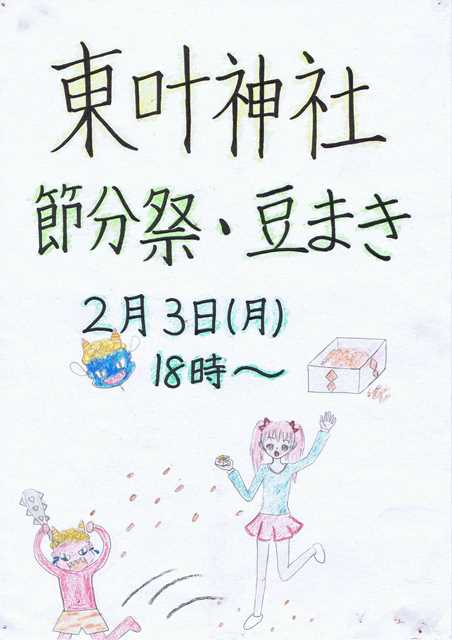 東叶神社
節分祭・豆まき
2月3日(月)
18時～